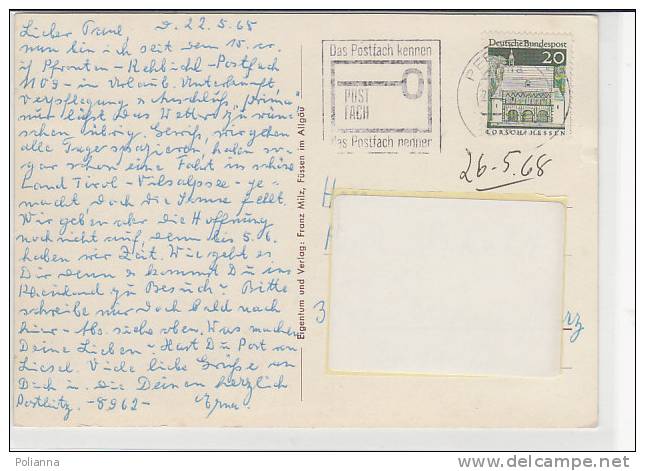 Lieber Franz, d. 22.5.68
nun bin ich seit dem 15. cr.
in Pfronten-Rehbichl-Postfach
1109 - in Urlaub. Unterkunft,
Verpflegung, Anschluß, "prima"
nur läßt das Wetter zu wün-
schen übrig. Gewiß, wir gehen
alle Tage spazieren, haben so-
gar schon eine Fahrt ins schöne
Land Tirol - Vilsalpsee - ge-
macht doch die Sonne fehlt.
Wir geben aber die Hoffnung
noch nicht auf, denn bis 5.6.
haben wir Zeit. Wie geht es
Dir denn & kommst Du ins
Rheinland zu Besuch? Bitte
schreibe mir doch bald nach
hier - Abs. siehe oben. Was machen
Deine Lieben? Hast Du Post von
Liesel. Viele liebe Grüße an
Dich u. die Deinen herzlich
Postleitz. -8962- Erna
Eigentum und Verlag: Franz Milz, Füssen im Allgäu
Das Postfach kennen
POST
FACH
das Postfach nennen
Deutsche Bundespost
20
LORSCH/HESSEN
26.5.68
3
Polianna
delcampe.net